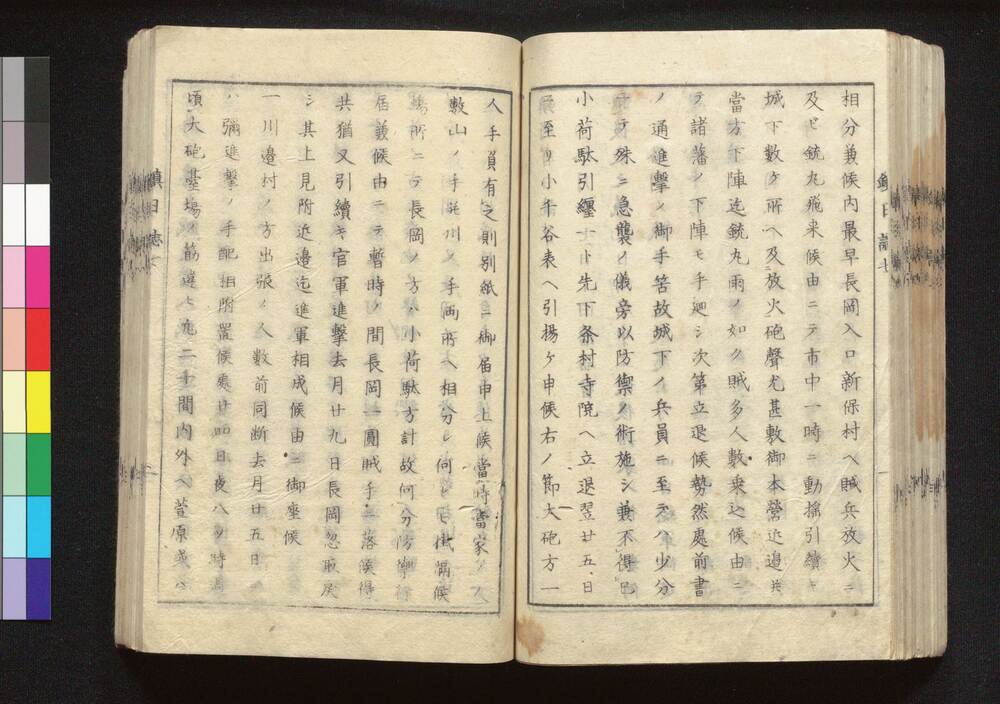 相分兼候内最早長岡入口新保村ヘ賊兵放火ニ
及ビ銃丸飛来候由ニテ市中一時ニ動揺引續キ
城下數ケ所ヘ及放火砲聲尤甚敷御本營近邉其
當方下陣迄銃丸雨ノ如ク賊多人數乗込候由ニ
テ諸藩ノ下陣モ手廻シ次第立退候勢然處前書
ノ通進撃ノ御手筈故城下ノ兵員ニ至テハ少分
ニテ殊ニ急襲ノ儀旁以防禦ノ術施シ兼不得已
小荷駄引纒一ト先下条村寺院ヘ立退翌廿五日
至リ小千谷表ヘ引揚ケ申候右ノ節大砲方一
人手負有之則別紙ニ御届申上候當時當家ノ人
數山ノ手川ノ手両所ヘ相分レ何レモ候
場所ニテ長岡ノ方ハ小荷駄方計故何分防禦行
届兼候由ニテ暫時ノ間長岡一圓賊手ニ落候得
共猶又引續キ官軍進撃去月廿九日長岡忽取戻
シ其上見附近邉迄進軍相成候由ニ御座候
一川邉村ノ方出張ノ人數前同断去月廿五日
ハ彌進撃ノ手配相附置候處廿四日夜八ツ時
頃大砲臺場ノ筋遠サ九二十間内外ヘ菅原